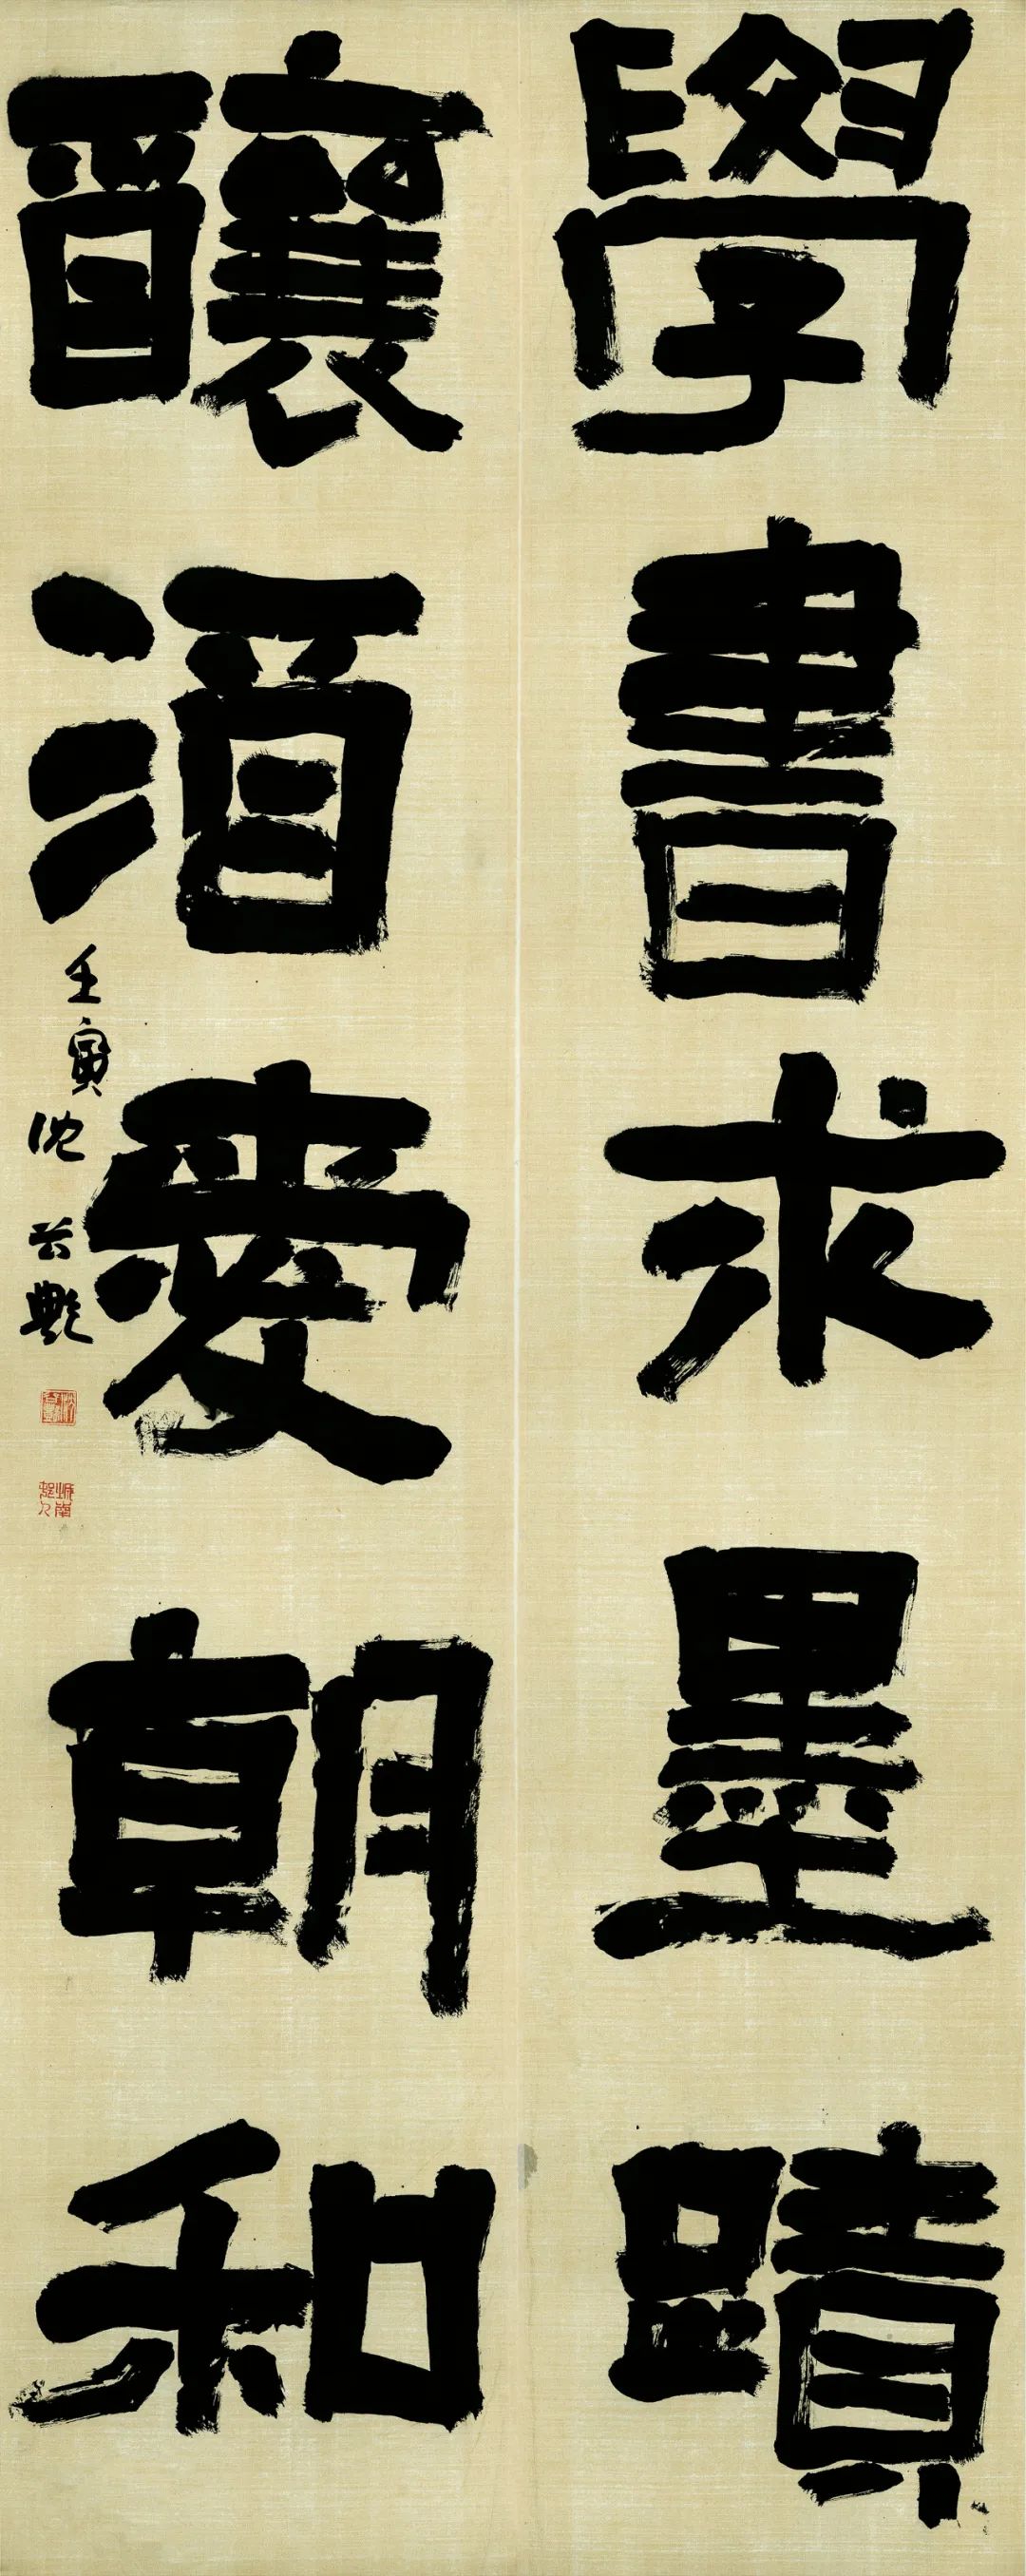 學書求墨蹟
釀酒愛朝和
壬寅
沈芸艷